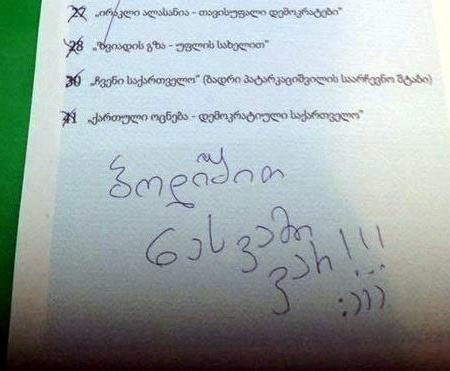 27 „ირაკლი ალასანია - თავისუფალი დემოკრატები"
28 „ზვიადის გზა - უფლის სახელით"
30 „ჩვენი საქართველო" (ბადრი პატარკაციშვილის საარჩევნო შტაბი)
41 „ქართული ოცნება - დემოკრატიული საქართველო"
ბოდიშით
ნასვამი
ვარ!!!
:)))